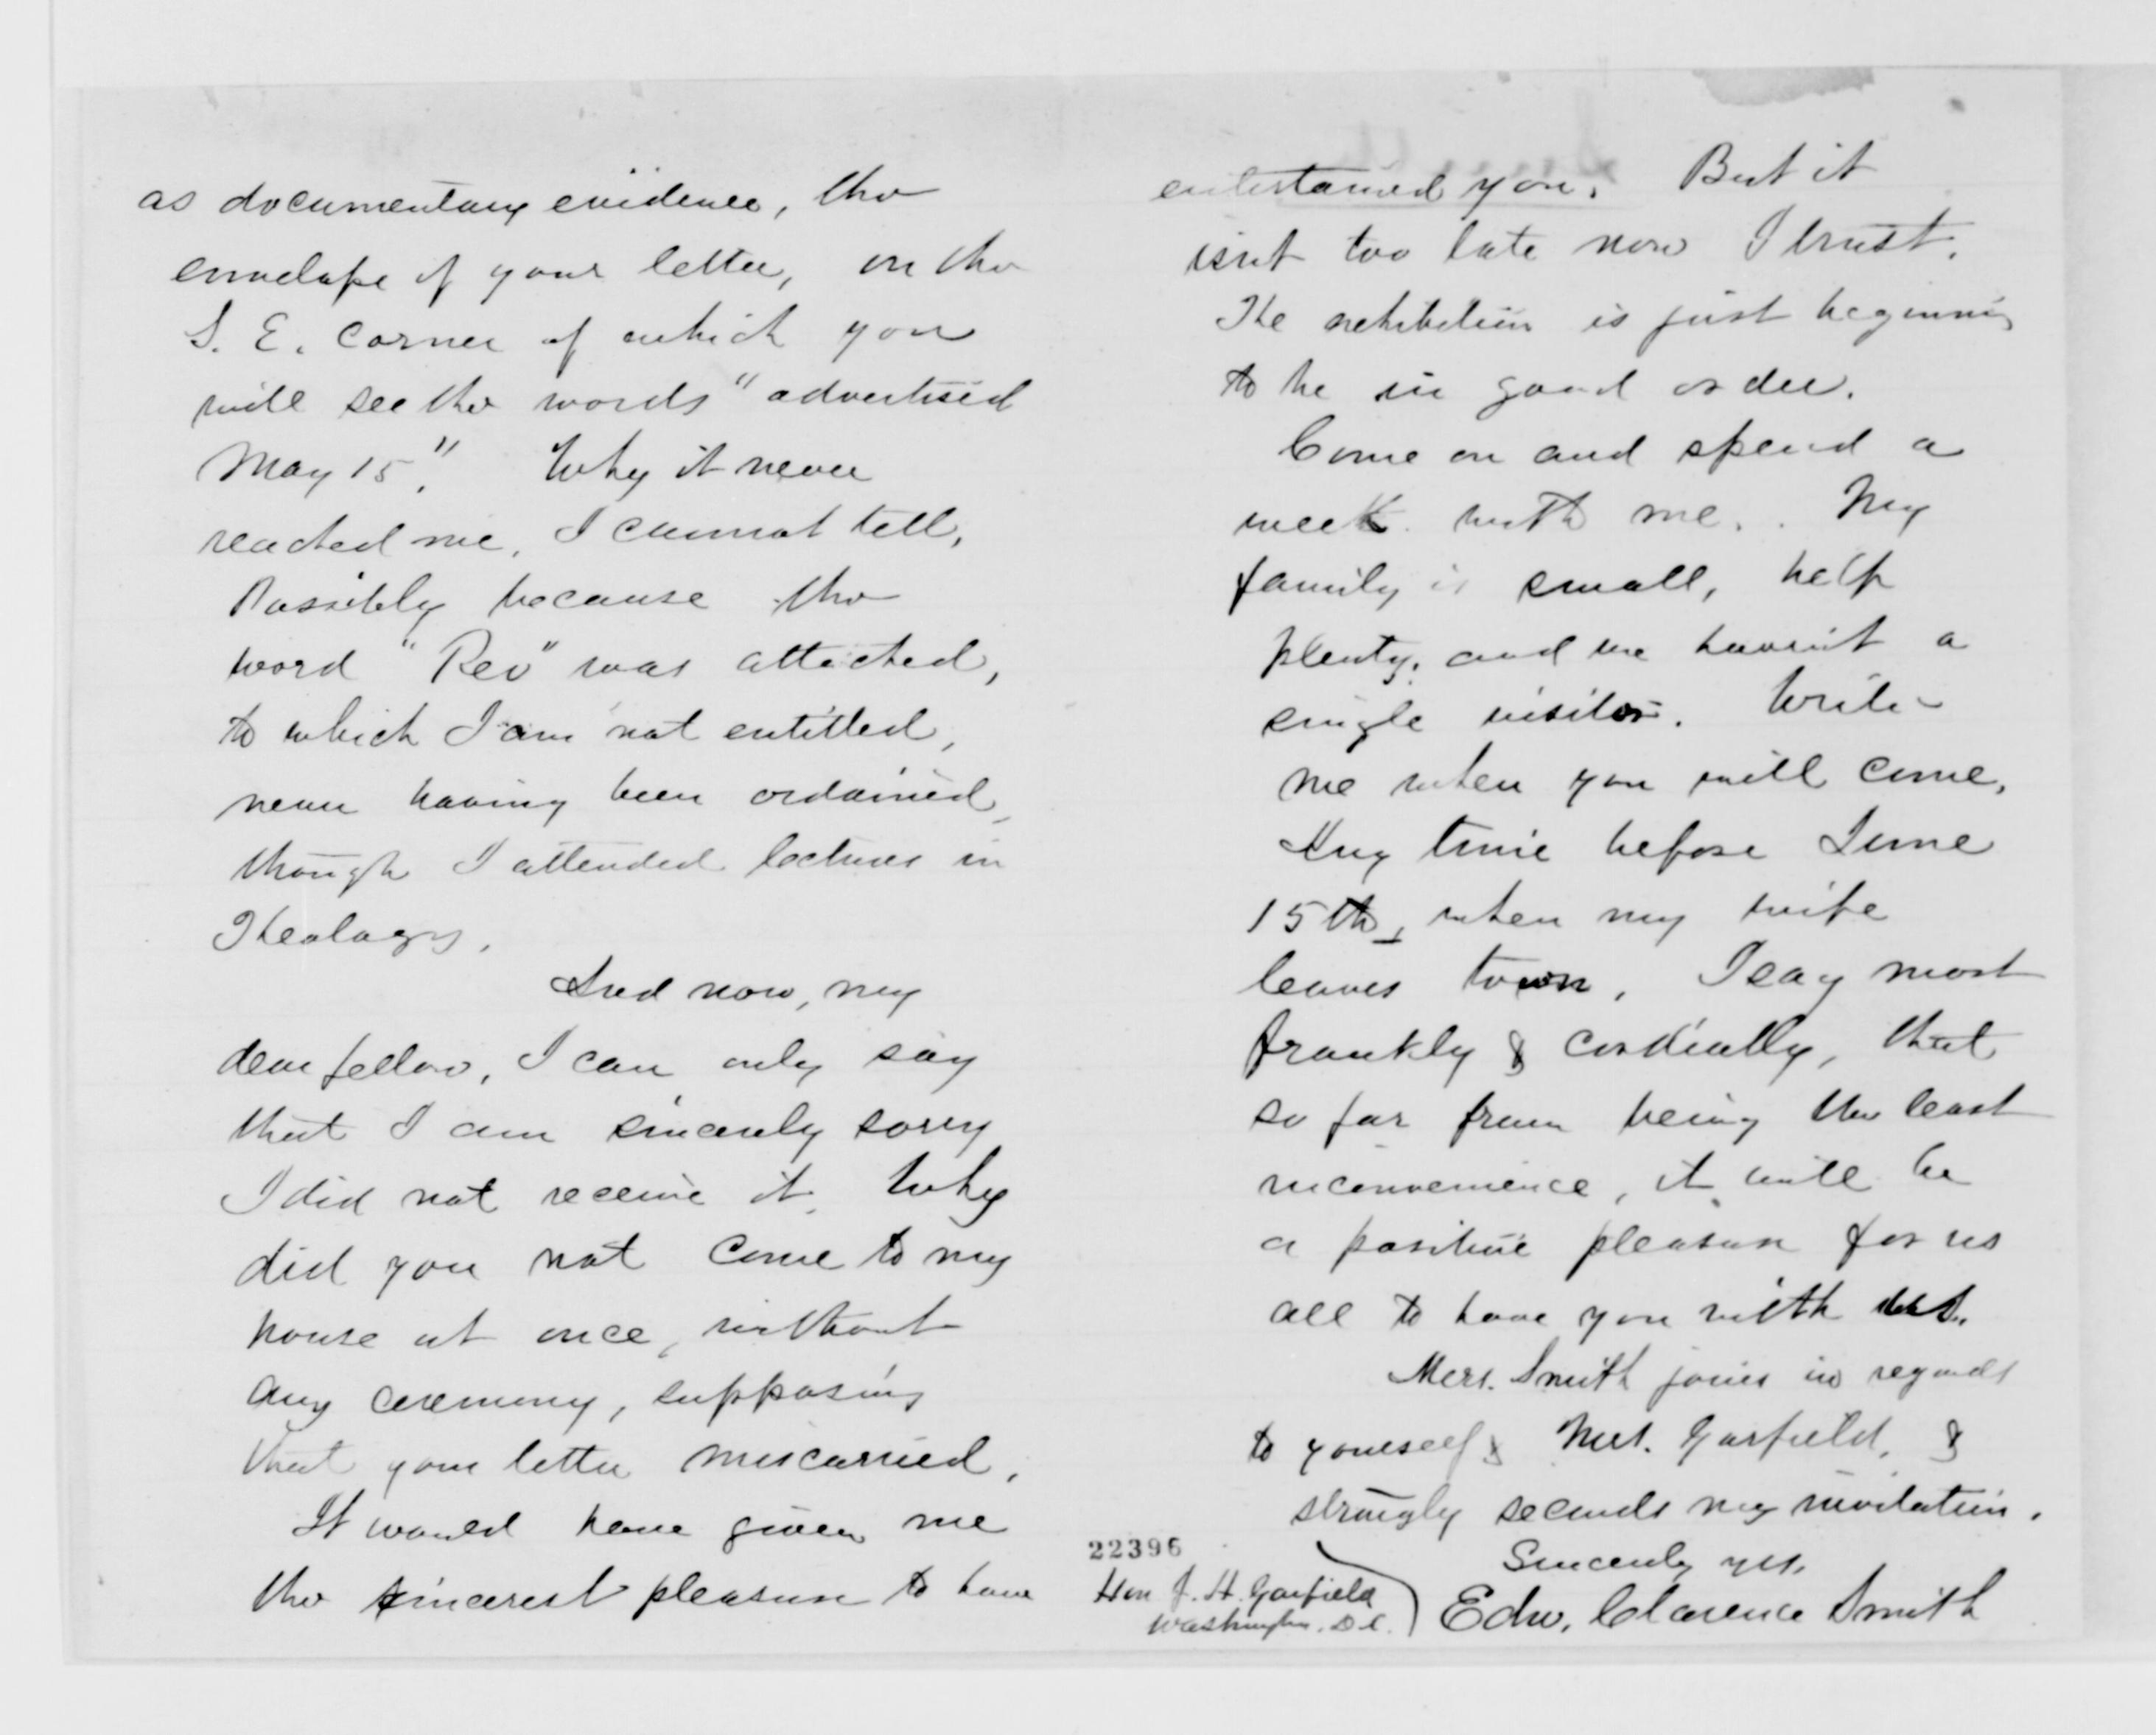 as documentary evidence, the
envelope of your letter, on the
S. E. Corner of which you
will see the words "advertised
May 15." Why it never
reached me, I cannot tell,
Possibly because the
word "Rev" was attached,
to which I am not entitled,
never having been ordained,
though I attended lectures in
Theology.
And now, my
dear fellow, I can only say
that I am sincerely sorry
I did not receive it. Why
did you not come to my
house at once, without
any ceremony, supposing
that your letter miscarried,
It would have given me
the sincerest pleasure to have
entertained you. But it
isnt too late now I trust.
The exhibition is just beginning
to be in good order.
Come on and spend a
week with me. My
family is small, help
plenty, and we havn't a
single visitor. Write
me when you will come,
Any time before June
15th, when my wife
leaves town, I say most
frankly & cordially, that
so far from being the least
inconvenience, it will be
a positive pleasure for us
all to have you with us.
Mrs. Smith joins in regards
to yourself & Mrs. Garfield, &
strongly seconds my invitation.
Sincerely yrs,
Edw. Clarence Smith
22396
Hon J. H. Garfield
Washington, D.C.